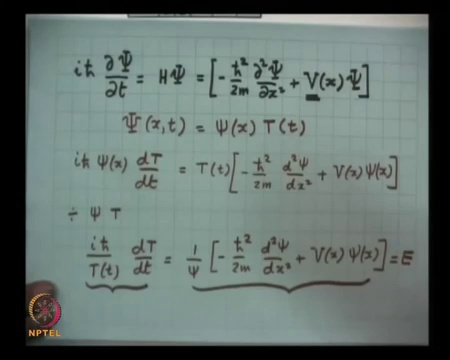 iℏ ∂Ψ/∂t = HΨ = [-ℏ²/2m ∂²Ψ/∂x² + V(x)Ψ]
Ψ(x,t) = ψ(x) T(t)
iℏ ψ(x) dT/dt = T(t)[-ℏ²/2m d²ψ/dx² + V(x)ψ(x)]
÷ ψ T
iℏ/T(t) dT/dt = 1/ψ [-ℏ²/2m d²ψ/dx² + V(x)ψ(x)] = E
NPTEL